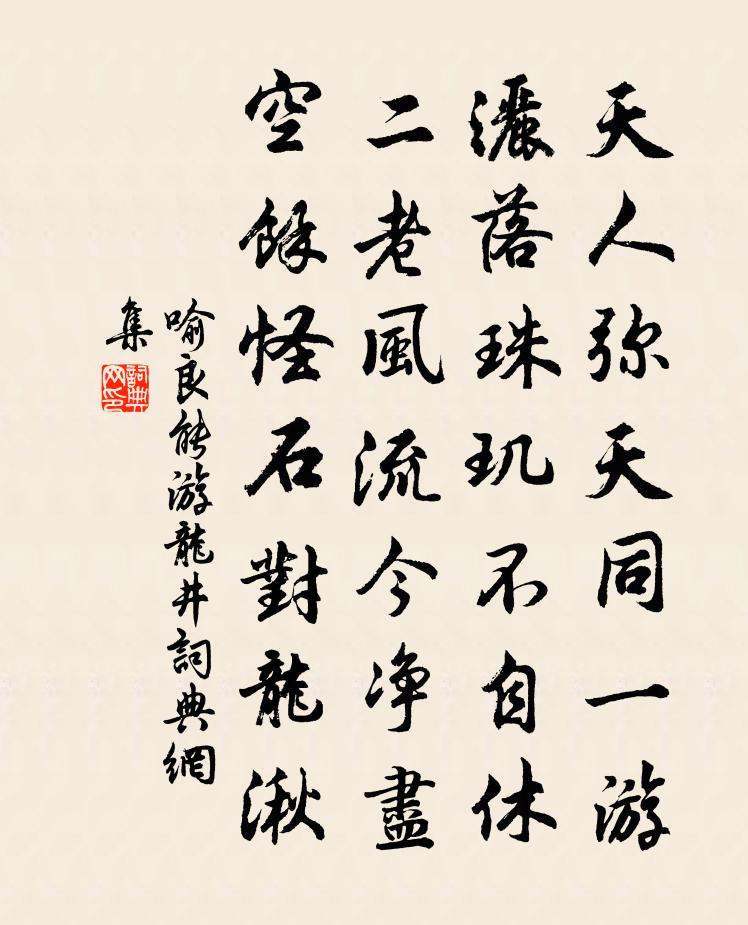 天人弥天同一游
灑落珠玑不自休
二老風流今净盡
空餘怪石對龍湫
喻良能游龍井詞典網
集
詞典
网印